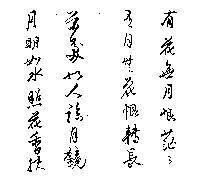 有花無月恨茫〻
有月無花恨轉長
花美似人臨月鏡
月明如水照花香扶